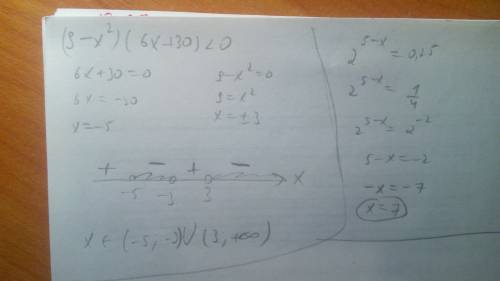 (9-x²)(6x+30)<0
6x+30=0
6x=-30
x=-5
9-x²=0
9=x²
x=±3
+ - + -
-5 -3 3 x
x∈(-5,-3)∪(3,+∞)
2^(5-x)=0,25
2^(5-x)=1/4
2^(5-x)=2^(-2)
5-x=-2
-x=-7
x=7